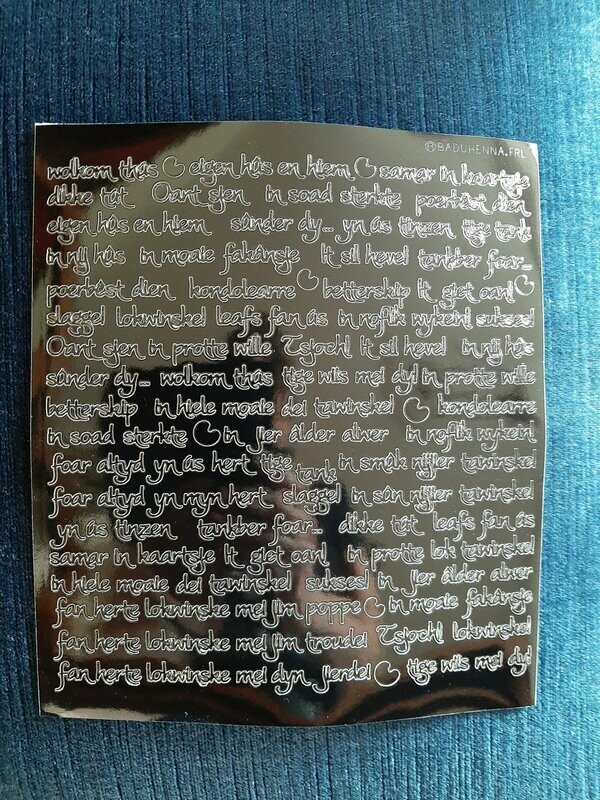 ©BADUHENNA.FRL
wolkom thús eigen hûs en hiem samar in kaartsje
dikke tút Oant sjen in soad sterkte poerbêst dien
eigen hûs en hiem sûnder dy... yn ús tinzen tige tank
in nij hûs in moaie fakânsje It sil heve! tankber foar...
poerbêst dien kondolearre betterskip It giet oan!
slagge! lokwinske! leafs fan ús in noflik wykein! sukses!
Oant sjen in protte wille Tsjoch! It sil heve! in nij hûs
sûnder dy... wolkom thús tige wiis mei dy! in protte wille
betterskip in hiele moaie dei tawinske! kondolearre
in soad sterkte in jier âlder atwer in noflik wykein!
foar altyd yn ús hert tige tank in smûk nijjier tawinske!
foar altyd yn myn hert slagge! in sûn nijjier tawinske!
yn ús tinzen tankber foar... dikke tút leafs fan ús
samar in kaartsje It giet oan! in protte lok tawinske!
in hiele moaie dei tawinske! sukses! in jier âlder atwer
fan herte lokwinske mei jim poppe in moaie fakânsje
fan herte lokwinske mei jim troude! Tsjoch! lokwinske!
fan herte lokwinske mei dyn jierdei tige wiis mei dy!